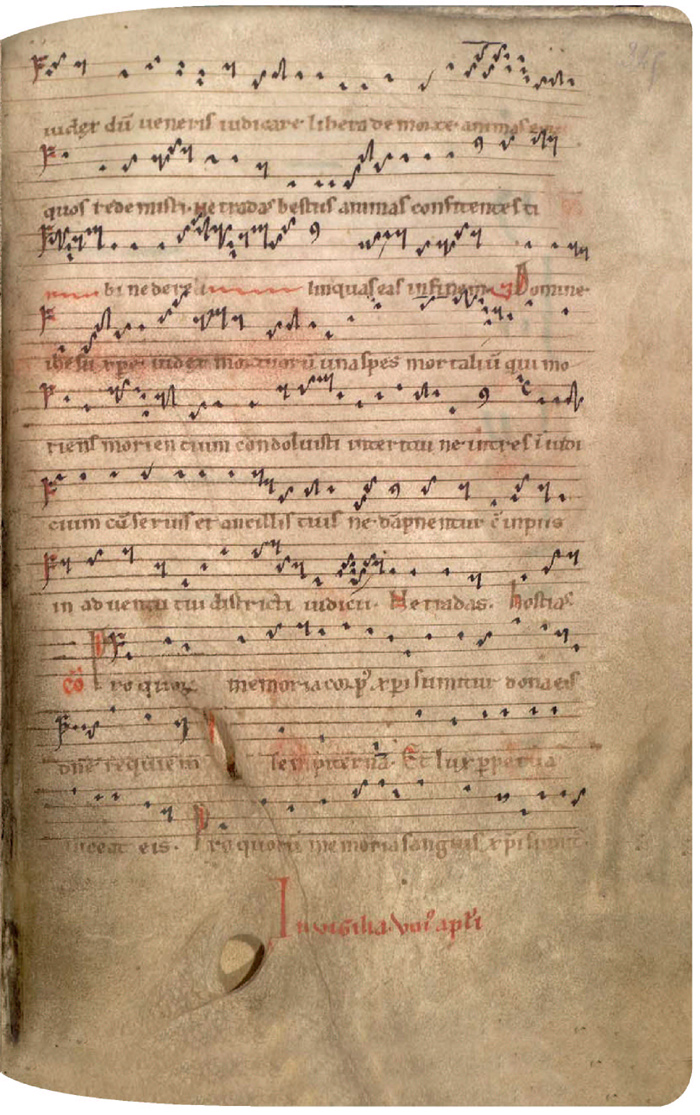 iudex dū ueneris iudicare libera de morte animas
quos redemisti. Ne tradas bestiis animas confitentes ti
bi ne dere linquas eas in finem. Domine
ihesu xpe iudex mortuorū una spes mortaliū qui mo
riens morientium condoluisti interitui ne intres ī iudi
cium cū seruis et ancillis tuis ne dāpnentur cū inpiis
in aduentu tui districti iudicii. Ne tradas. hostias
cō Pro quorū memoria corp' xpi sumitur dona eis
dn̄e requiem sempiternā. Et lux ꝑpetua
luceat eis. Pro quorū memoria sanguis xp̄i sumit
In vigilia vni' apl̄i